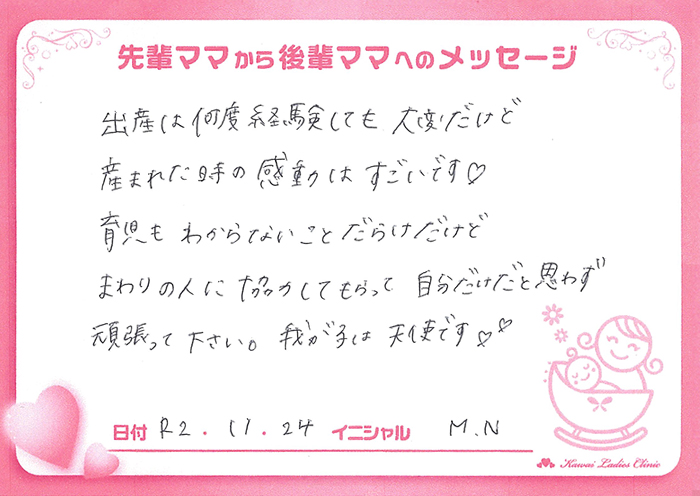 先輩ママから後輩ママへのメッセージ
出産は何度経験しても 大変だけど
産まれた時の感動は すごいです♡
育児も わからないことだらけだけど
まわりの人に 協力してもらって 自分だけだと思わず
頑張って 下さい。 我が子は 天使です♡♡
日付 R2.11.24 イニシャル M.N
Kawai Ladies Clinic